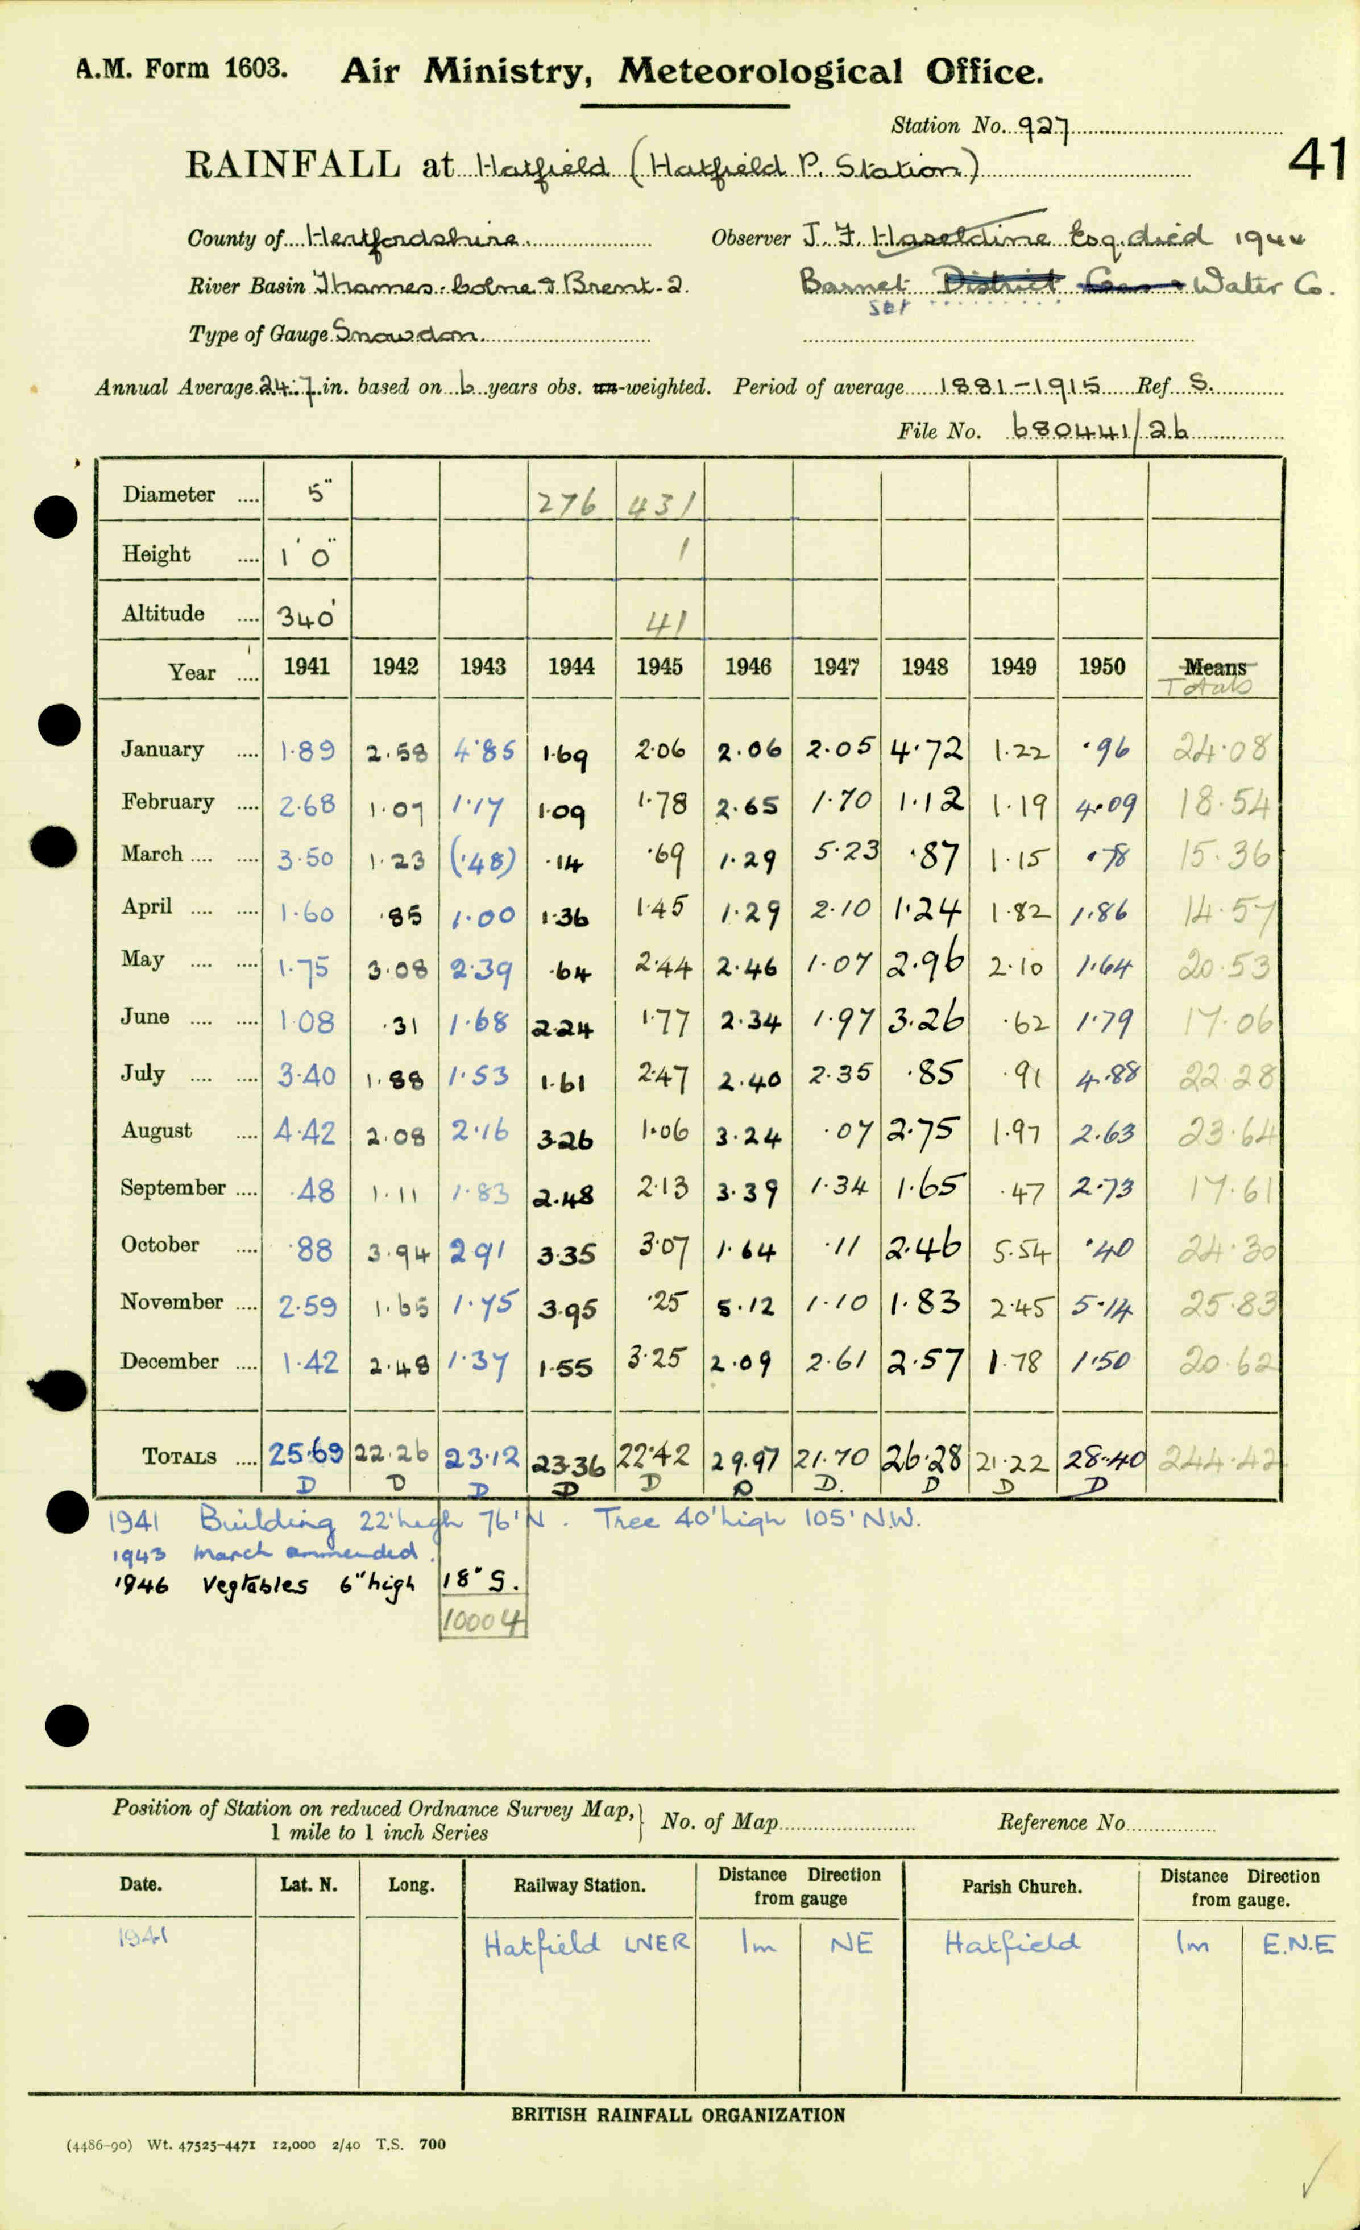 A.M. Form 1603. Air Ministry, Meteorological Office.
Station No. 927
41
RAINFALL at Hatfield (Hatfield P. Station)
County of Hertfordshire Observer J. F. Haseldine Esq. died 1944
River Basin Thames. Colne & Brent. 2. Barnet District Water Co.
Type of Gauge Snowdon
Annual Average 24.7 in. based on 6 years obs. un-weighted. Period of average 1881-1915 Ref S.
File No. 680441/26
Diameter .... 5" 276 431
Height .... 1' 0" 1
Altitude .... 340' 41
Year .... 1941 1942 1943 1944 1945 1946 1947 1948 1949 1950 Means
Totals
January .... 1.89 2.58 4.85 1.69 2.06 2.06 2.05 4.72 1.22 .96 24.08
February .... 2.68 1.07 1.17 1.09 1.78 2.65 1.70 1.12 1.19 4.09 18.54
March .... .... 3.50 1.23 (.48) .14 .69 1.29 5.23 .87 1.15 .78 15.36
April .... .... 1.60 .85 1.00 1.36 1.45 1.29 2.10 1.24 1.82 1.86 14.57
May .... .... 1.75 3.08 2.39 .64 2.44 2.46 1.07 2.96 2.10 1.64 20.53
June .... .... 1.08 .31 1.68 2.24 1.77 2.34 1.97 3.26 .62 1.79 17.06
July .... .... 3.40 1.88 1.53 1.61 2.47 2.40 2.35 .85 .91 4.88 22.28
August .... 4.42 2.08 2.16 3.26 1.06 3.24 .07 2.75 1.97 2.63 23.64
September .... .48 1.11 1.83 2.48 2.13 3.39 1.34 1.65 .47 2.73 17.61
October .... .88 3.94 2.91 3.35 3.07 1.64 .11 2.46 5.54 .40 24.30
November .... 2.59 1.65 1.75 3.95 .25 5.12 1.10 1.83 2.45 5.14 25.83
December .... 1.42 2.48 1.37 1.55 3.25 2.09 2.61 2.57 1.78 1.50 20.62
TOTALS .... 25.69 22.26 23.12 23.36 22.42 29.97 21.70 26.28 21.22 28.40 244.42
D D D D D D D. D D D
1941 Building 22' high 76' N. Tree 40' high 105' N.W.
1943 March ammended.
1946 Vegtables 6" high 18" S.
10004
Position of Station on reduced Ordnance Survey Map, 1 mile to 1 inch Series } No. of Map Reference No.
Date. Lat. N. Long. Railway Station. Distance Direction from gauge Parish Church. Distance Direction from gauge.
1941 Hatfield LNER 1m NE Hatfield 1m E.N.E
BRITISH RAINFALL ORGANIZATION
(4486-90) Wt. 47525-4471 12,000 2/40 T.S. 700